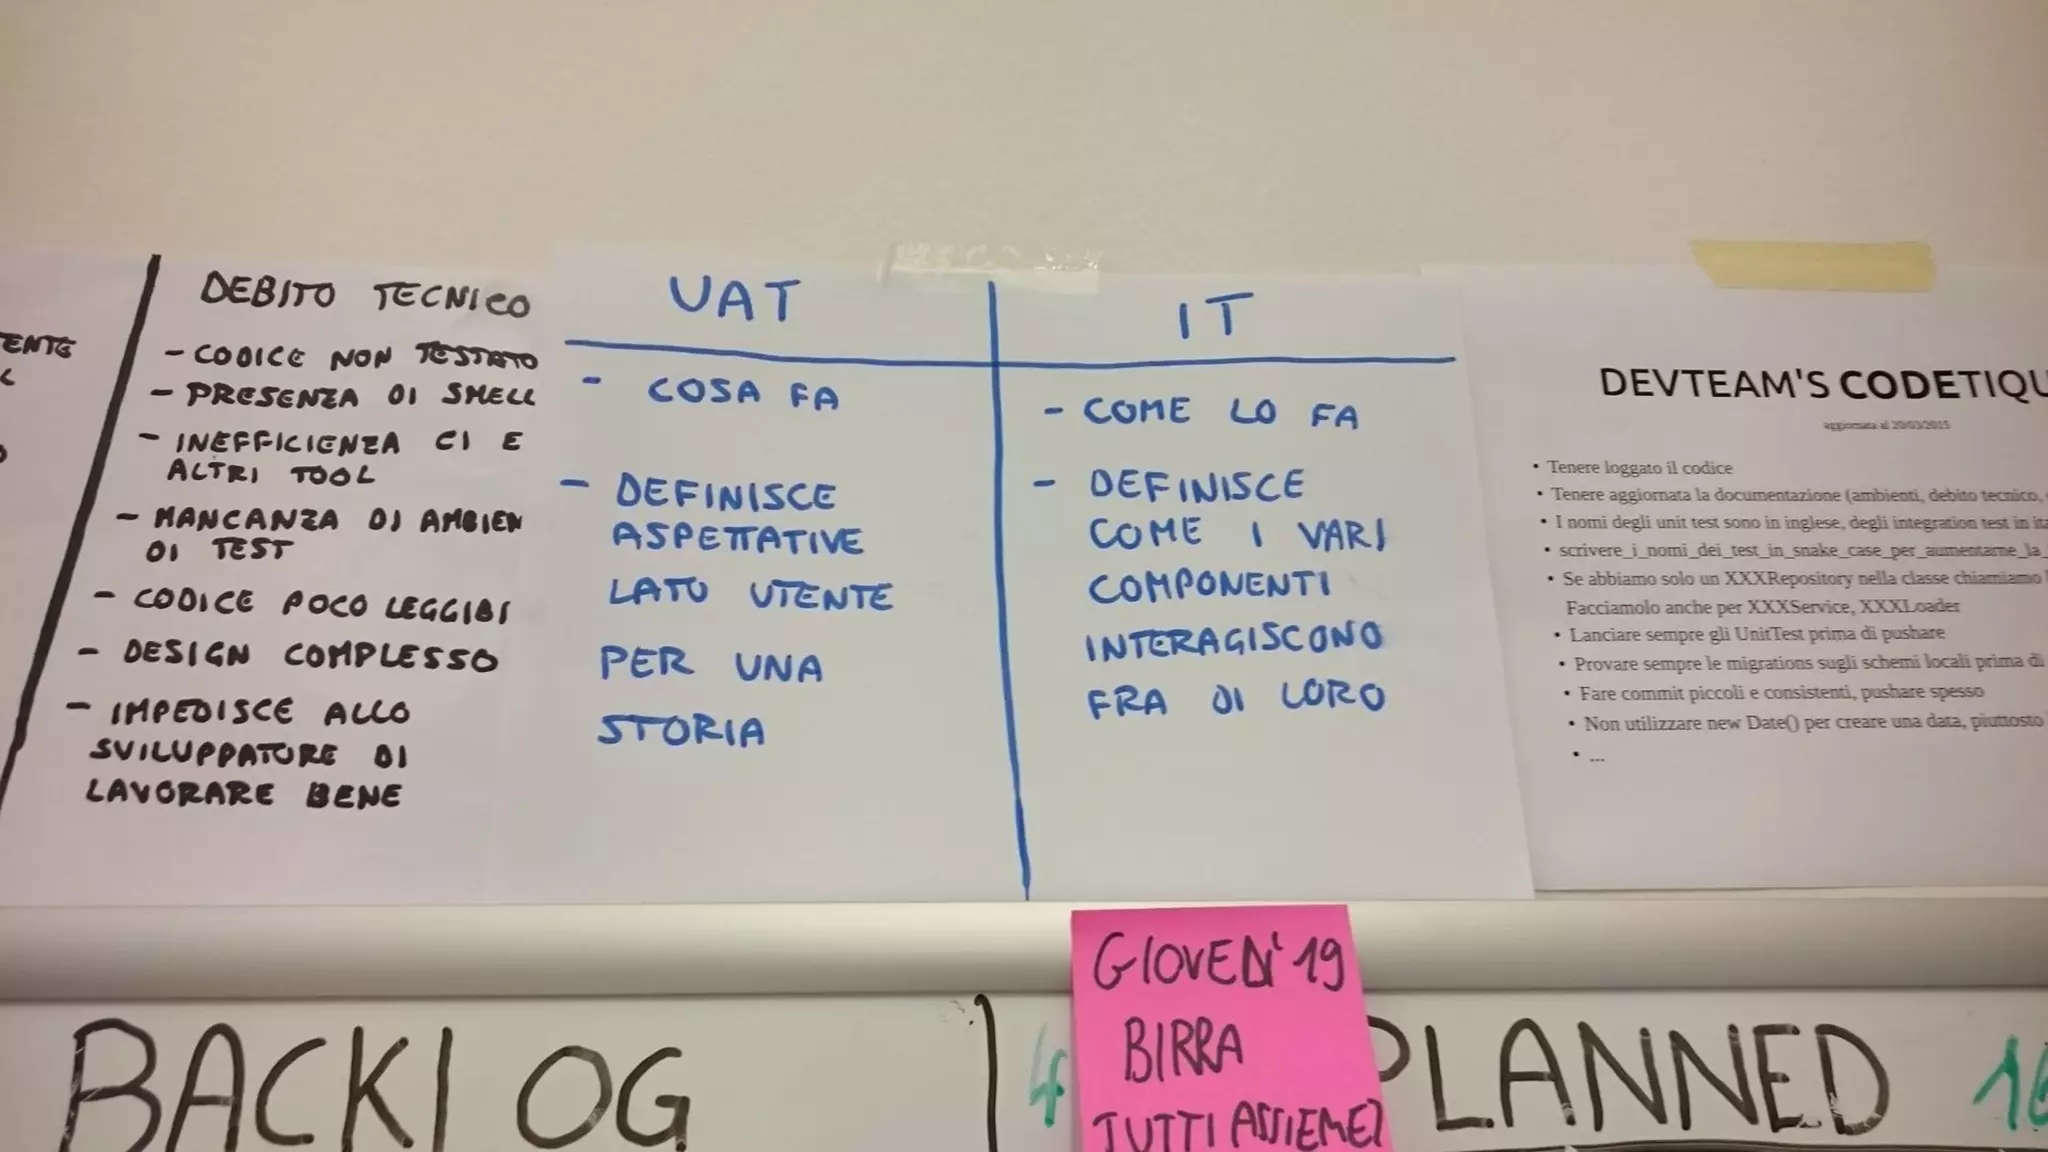 ENTE
DEBITO TECNICO
- CODICE NON TESTATO
- PRESENZA DI SMELL
- INEFFICIENZA CI E
ALTRI TOOL
- MANCANZA DI AMBIEN
DI TEST
- CODICE POCO LEGGIBI
- DESIGN COMPLESSO
- IMPEDISCE ALLO
SVILUPPATORE DI
LAVORARE BENE
UAT
- COSA FA
- DEFINISCE
ASPETTATIVE
LATO UTENTE
PER UNA
STORIA
IT
- COME LO FA
- DEFINISCE
COME I VARI
COMPONENTI
INTERAGISCONO
FRA DI LORO
DEVTEAM'S CODETIQU
aggiornata al 20/03/2015
• Tenere loggato il codice
• Tenere aggiornata la documentazione (ambienti, debito tecnico,
• I nomi degli unit test sono in inglese, degli integration test in ita
• scrivere_i_nomi_dei_test_in_snake_case_per_aumentarne_la_
• Se abbiamo solo un XXXRepository nella classe chiamiamo
Facciamolo anche per XXXService, XXXLoader
• Lanciare sempre gli UnitTest prima di pushare
• Provare sempre le migrations sugli schemi locali prima di
• Fare commit piccoli e consistenti, pushare spesso
• Non utilizzare new Date() per creare una data, piuttosto
• ...
GIOVEDI' 19
BIRRA
TUTTI ASSIEME?
BACKLOG
4
PLANNED
16